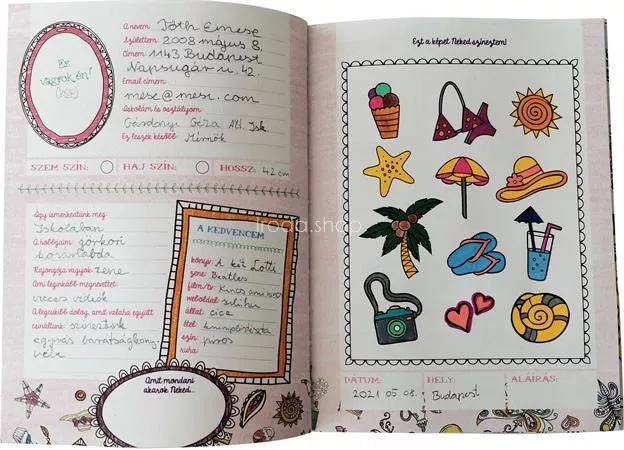 Ez
vagyok én!
A nevem: Tóth Emese
Születtem: 2008 május 8.
Címem: 1143 Budapest
Napsugár u. 42.
Email címem:
mese@mesi.com
Iskolám és osztályom:
Gárdonyi Géza Ált. Isk.
Ez leszek később: Mérnök
SZEM SZÍN: HAJ SZÍN: HOSSZ: 42 cm
Így ismerkedtünk meg:
Iskolában
A hobbijaim: görkori
kosárlabda
Rajongója vagyok: zene
Ami leginkább megnevettet:
vicces videók
A legcikibb dolog, amit valaha együtt
csináltunk: színeztünk
egymás barátságköny-
vébe
A KEDVENCEM
könyv: A két Lotti
zene: Beatles
film/tv:
weboldal:
állat: cica
étel: krumplistészta
szín: piros
ruha:
Amit mondani
akarok Neked...
iroda.shop
Ezt a képet Neked színeztem!
DÁTUM: HELY: ALÁÍRÁS:
2021 05 08. Budapest